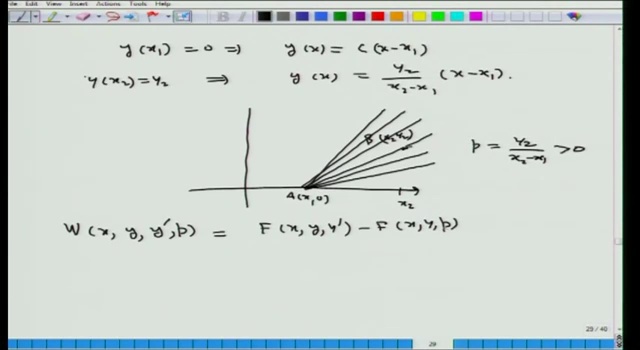 File Edit View Insert Actions Tools Help
y(x₁) = 0 ⇒ y(x) = C(x-x₁)
y(x₂) = y₂ ⇒ y(x) = y₂/(x₂-x₁) (x-x₁).
B(x₂,y₂)
p = y₂/(x₂-x₁) > 0
A(x₁,0) x₂
W(x, y, y′, p) = F(x, y, y′) - F(x, y, p)
29 / 40
29